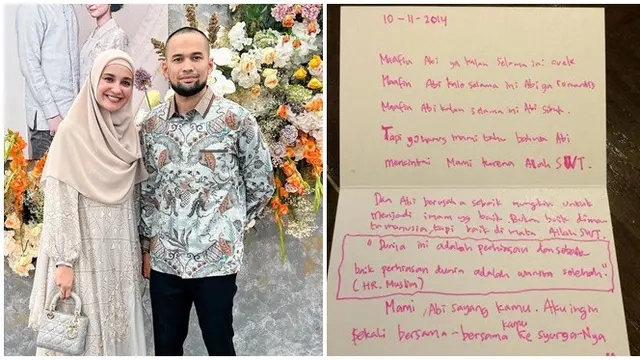 10-11-2014
Maafin Abi ya kalau selama ini cuek
Maafin Abi kalo selama ini Abi ga romantis
Maafin Abi kalau selama ini Abi sibuk.
Tapi yg mami tahu bahwa Abi
mencintai Mami karena Allah SWT.
Dan Abi berusaha sebaik mungkin untuk
menjadi imam yg baik. Bukan baik dimata
manusia, tapi baik di mata Allah SWT.
"Dunia ini adalah perhiasan dan sebaik
baik perhiasan dunia adalah wanita solehah."
(HR. Muslim)
Mami, Abi sayang kamu. Aku ingin
sekali bersama-bersama kamu ke syurga-Nya